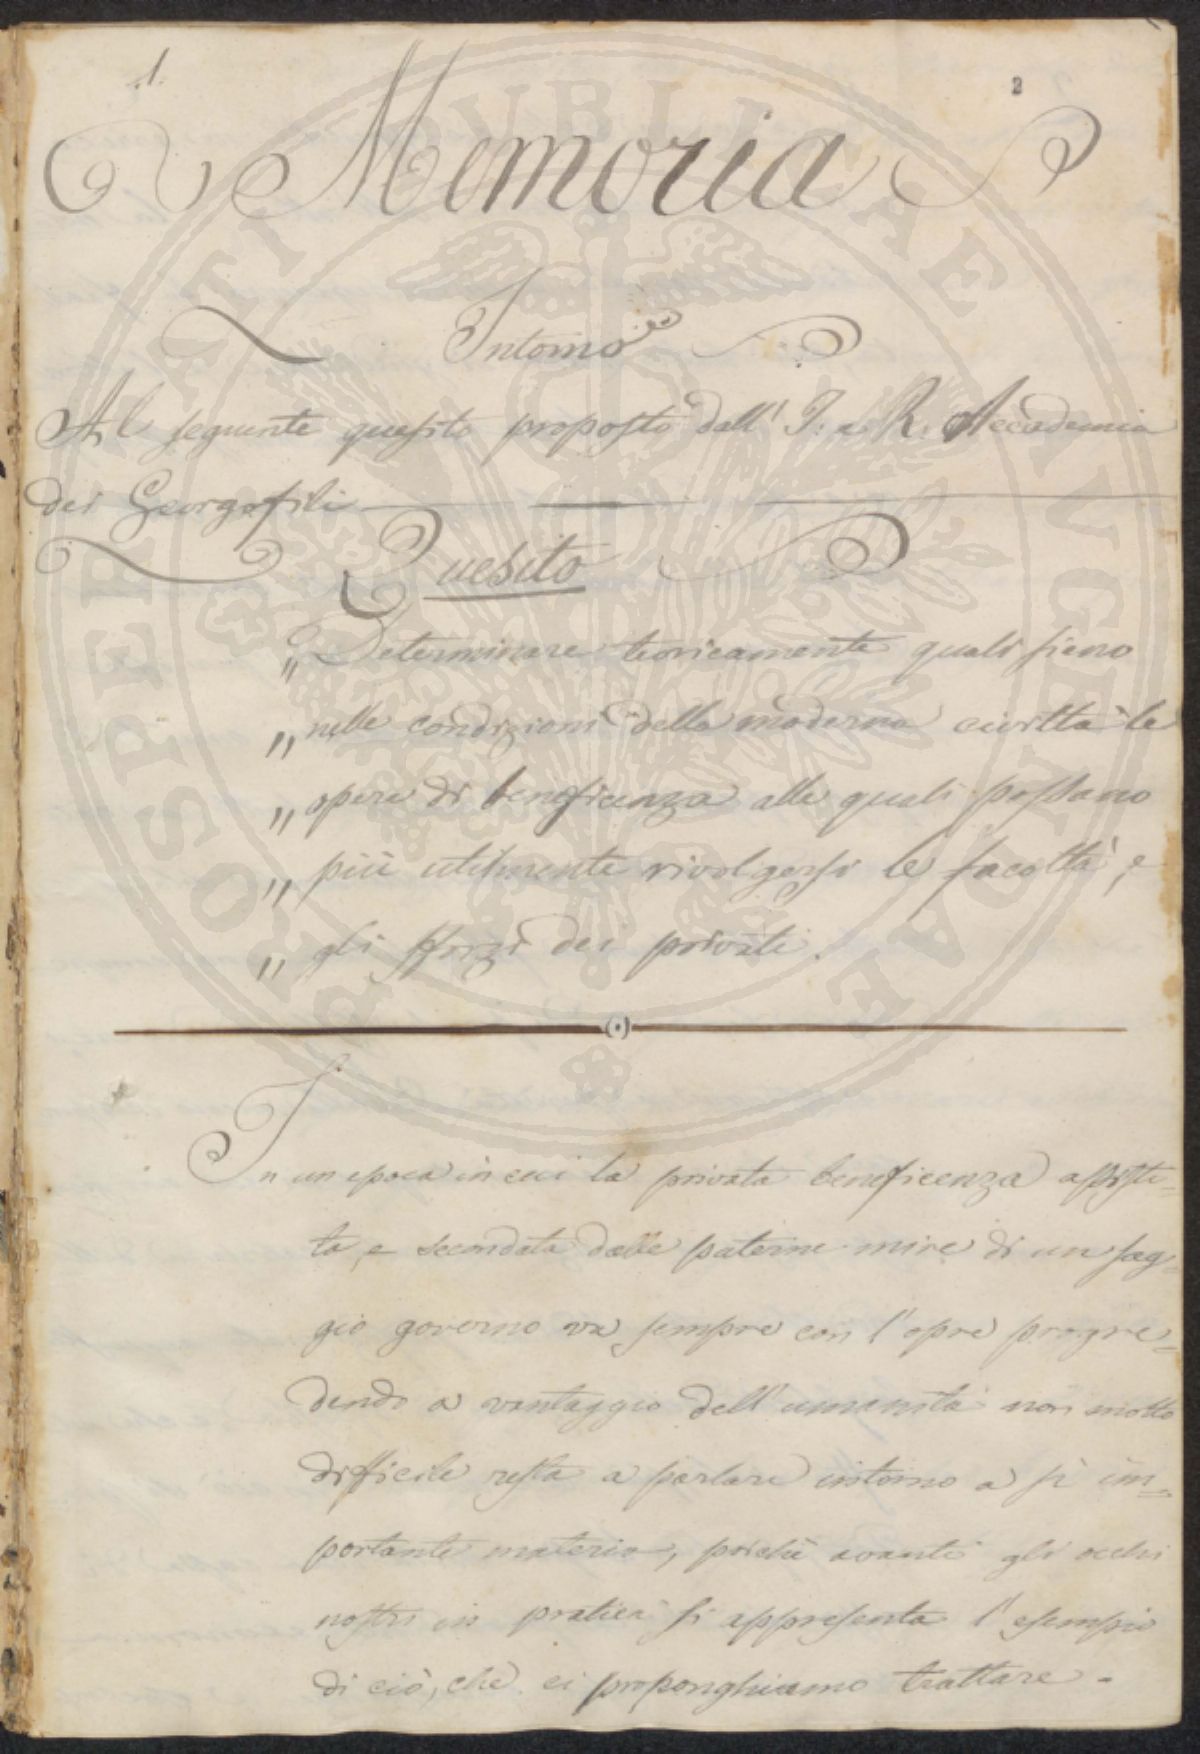 1.
2
Memoria
Intorno
Al seguente quesito proposto dall' I: e R. Accademia
dei Georgofili
Quesito
„ Determinare teoricamente quali sieno
„ nelle condizioni della moderna civiltà le
„ opere di beneficenza alle quali possano
„ più utilmente rivolgersi le facoltà, e
„ gli sforzi dei privati.
In un epoca in cui la privata beneficenza assisti=
ta, e secondata dalle paterne mire di un sag=
gio governo va sempre con l'opre progre=
dendo a vantaggio dell'umanità non molto
difficile resta a parlare intorno a sì im=
portante materia, poichè avanti gli occhi
nostri in pratica si appresenta l'esempio
di ciò, che ci proponghiamo trattare.
PROSPERITATI PVBLICAE AVGENDAE